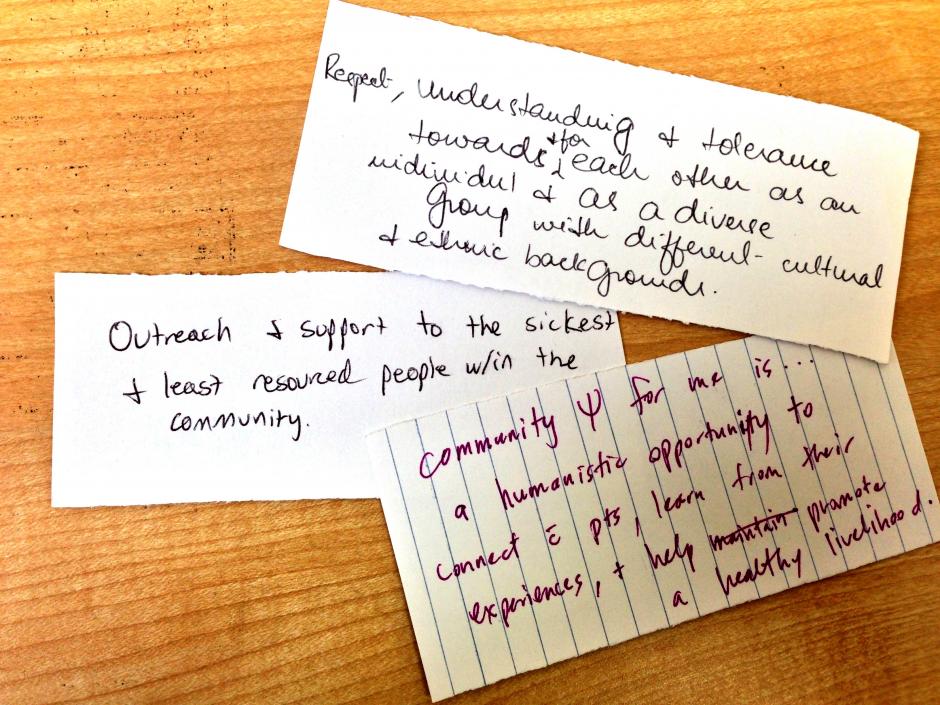 Respect, understanding & tolerance
towards & for each other as an
individual & as a diverse
Group with different cultural
& ethnic backgrounds.
Outreach & support to the sickest
& least resourced people w/in the
community.
community Ψ for me is...
a humanistic opportunity to
connect c̄ pts, learn from their
experiences, & help maintain promote
a healthy livelihood.